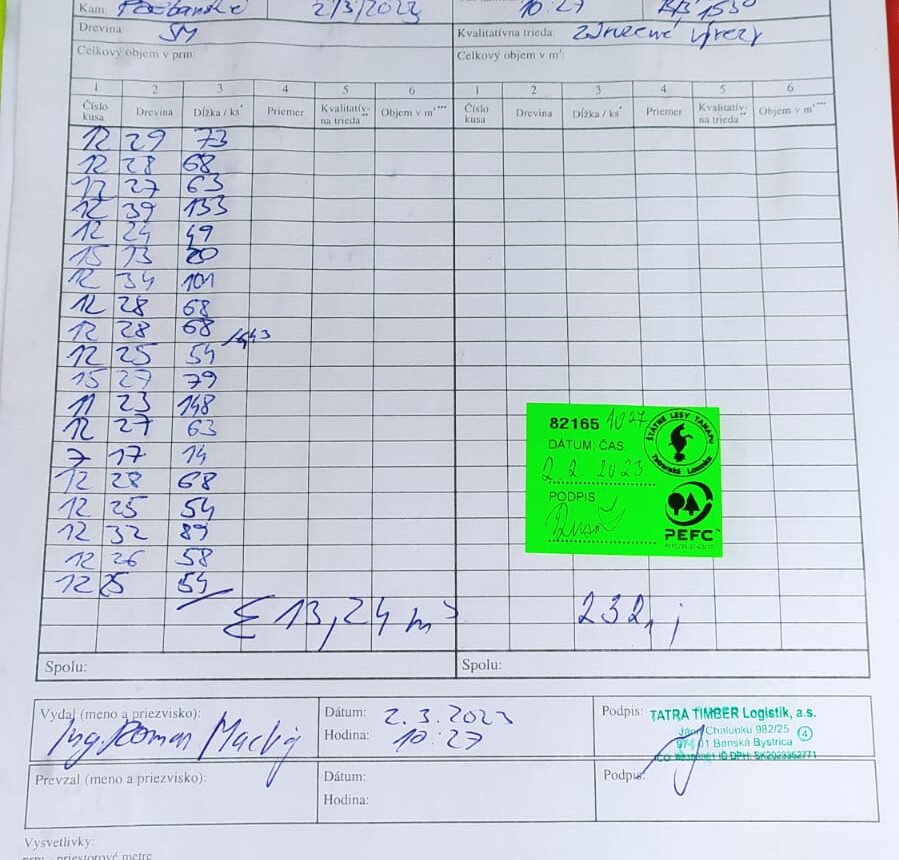 Kam: Podbanské 2/3/2023 10:27
Drevina: SM Kvalitatívna trieda: združené výrezy
Celkový objem v prm: Celkový objem v m³:
1 2 3 4 5 6 1 2 3 4 5 6
Číslo kusa Drevina Dĺžka / ks* Priemer Kvalitatív-na trieda** Objem v m³*** Číslo kusa Drevina Dĺžka / ks* Priemer Kvalitatív-na trieda** Objem v m³***
12 29 73
12 28 68
12 27 63
12 39 133
12 24 49
15 13 20
12 34 101
12 28 68
12 28 68
12 25 54
15 27 79
11 23 148
12 27 63
7 17 14
12 28 68
12 25 54
12 32 89
12 26 58
12 25 54
82165 1027
DÁTUM, ČAS
2.2 2023
PODPIS
ŠTÁTNE LESY TANAPu
Tatranská Lomnica
PEFC
Σ 13,24 m³ 232
Spolu: Spolu:
Vydal (meno a priezvisko): Ing. Roman Dátum: 2.3.2023 Podpis:
Hodina: 10:27
TATRA TIMBER Logistik, a.s.
Jána Chalupku 982/25
974 01 Banská Bystrica
4
Prevzal (meno a priezvisko): Dátum: Podpis:
Hodina:
Vysvetlivky:
prm - priestorové metre